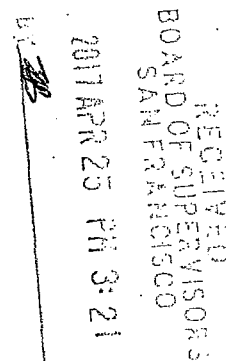 RECEIVED
BOARD OF SUPERVISORS
SAN FRANCISCO
2017 APR 25 PM 3:21
BY